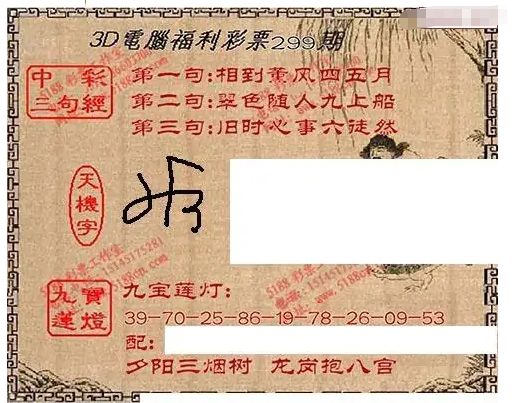 3D電腦福利彩票299期
中彩
三句經
第一句:相到薰风四五月
第二句:翠色随人九上船
第三句:旧时心事六徒然
天機字
九寶
蓮燈
九宝莲灯:
39-70-25-86-19-78-26-09-53
配:
夕阳三烟树 龙岗抱八宫